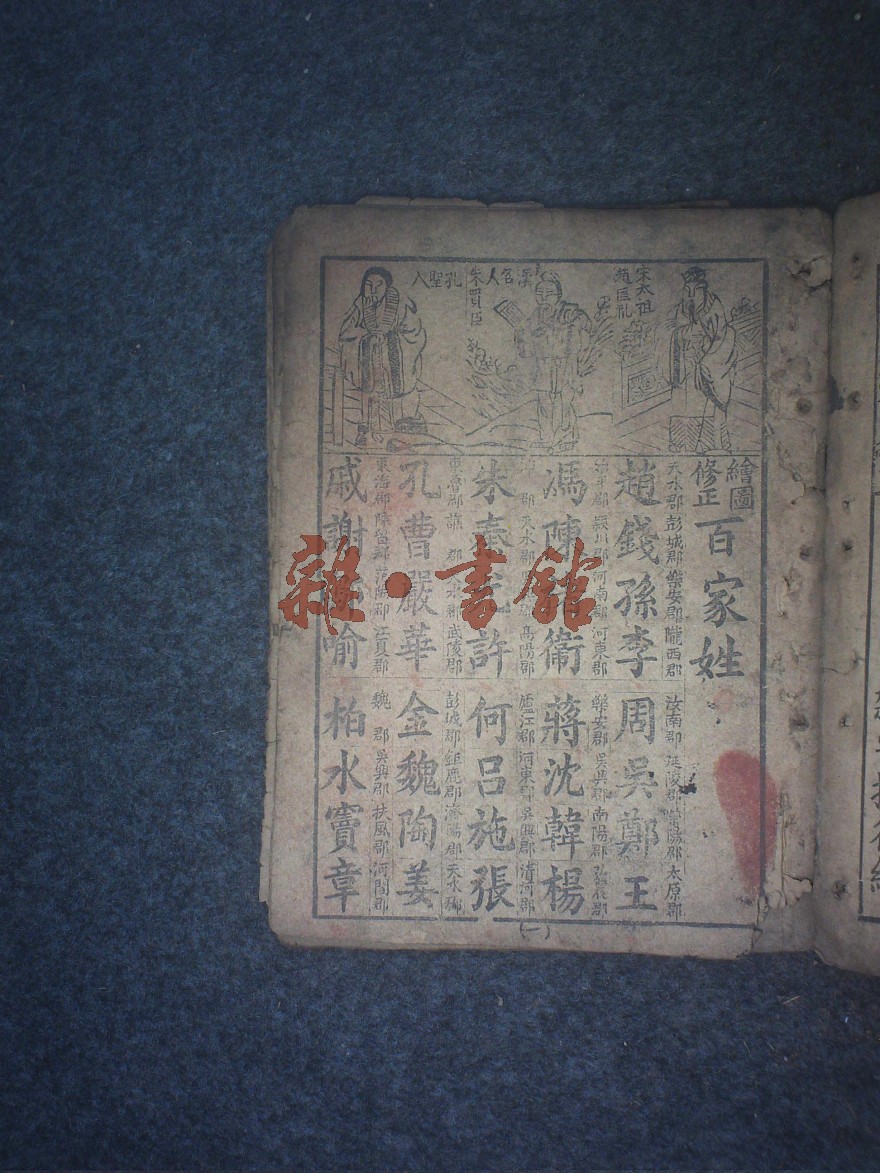 宋太祖
趙匡胤
漢名人
朱買臣
孔聖人
繪圖
修正
百家姓
天水郡 彭城郡 樂安郡 隴西郡 汝南郡 延陵郡 滎陽郡 太原郡
趙錢孫李 周吳鄭王
郡 潁川郡 河南郡 河東郡 樂安郡 吳興郡 南陽郡 弘農郡
馮陳衛 蔣沈韓楊
郡 天水郡 高陽郡 廬江郡 河東郡 吳興郡 清河郡
朱秦許 何呂施張
東魯郡 譙郡 天水郡 武陵郡 彭城郡 鉅鹿郡 濟陽郡 天水郡
孔曹嚴華 金魏陶姜
東海郡 陳留郡 范陽郡 江夏郡 魏郡 吳興郡 扶風郡 河間郡
戚謝喻 柏水竇章
(一)
雜·書館